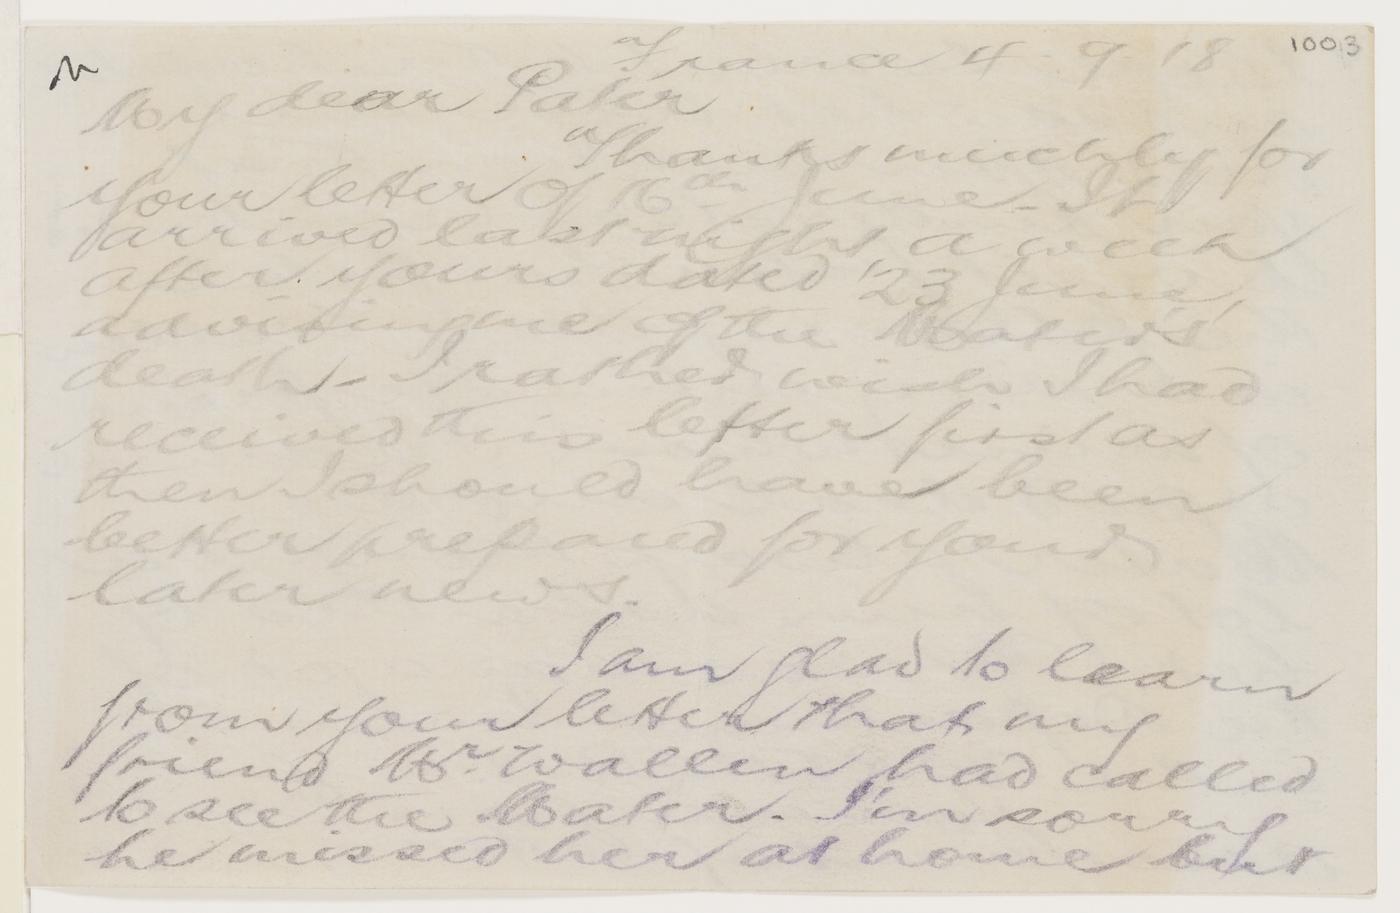 1003
France 4-9-18
My dear Pater
Thanks muchly for
your letter of 16th June - It
arrived last night a week
after yours dated '23 June,
advising me of the Mater's
death - I rather wish I had
received this letter first as
then I should have been
better prepared for your
later news.
I am glad to learn
from your letter that my
friend Mr. Wallen had called
to see the Mater. I'm sorry
he missed her at home but